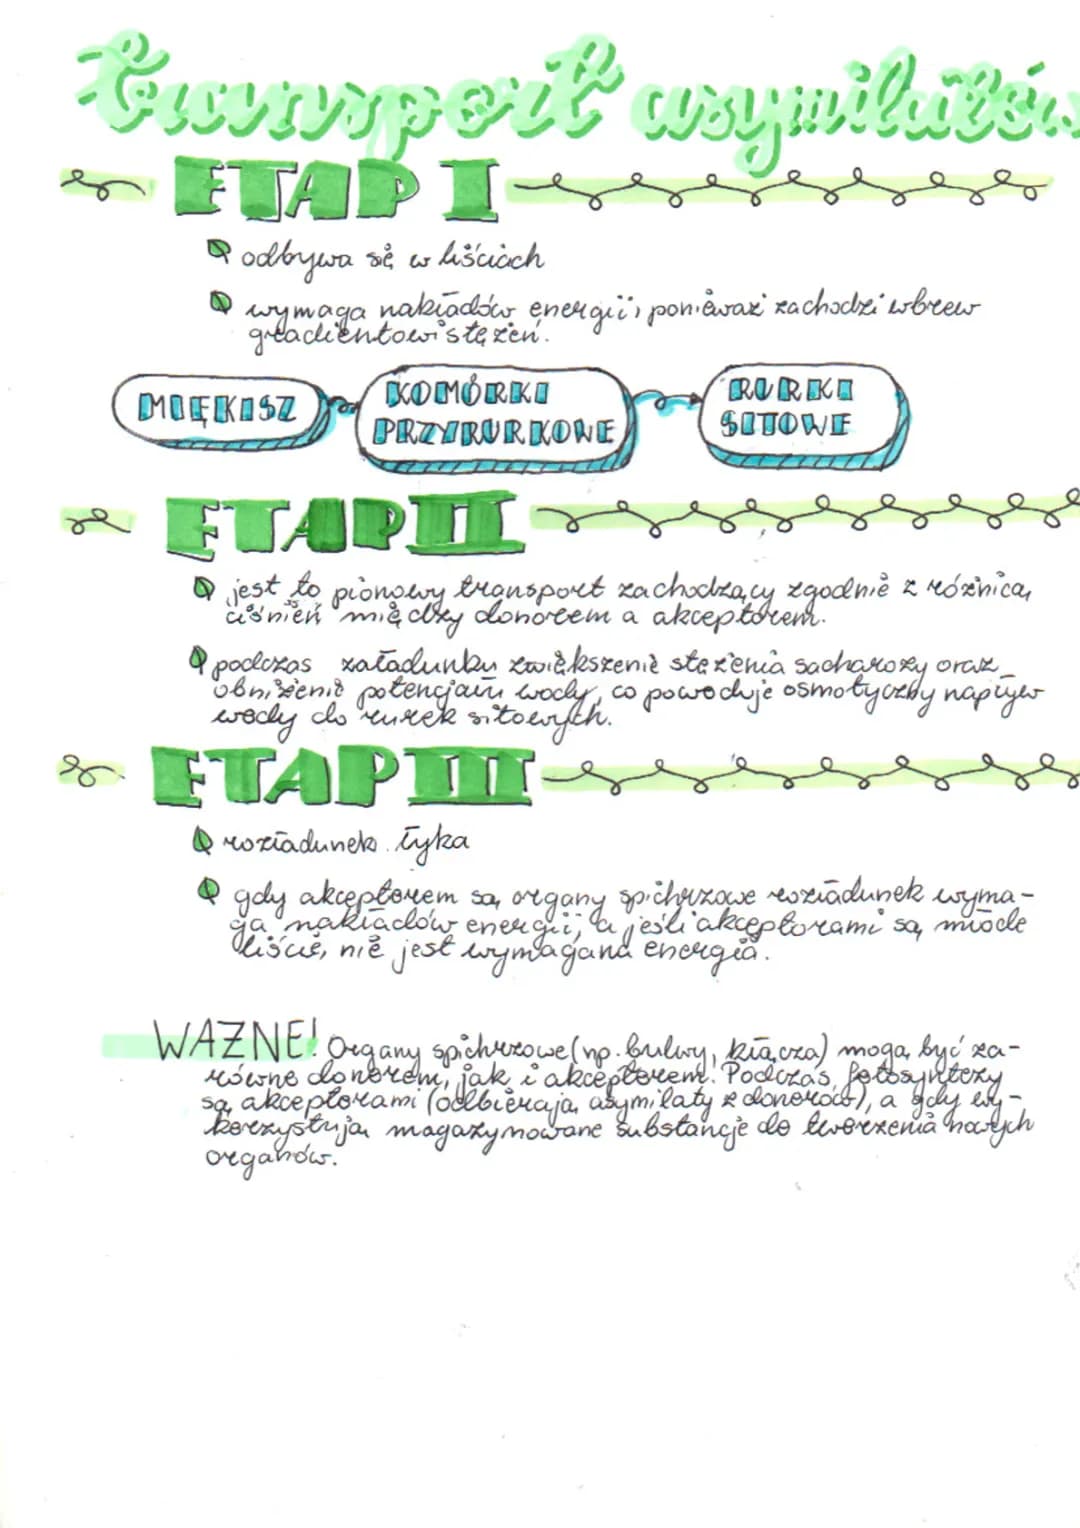 transport asymilatów
ETAP I
odbywa się w liściach
wymaga nakładów energii, ponieważ zachodzi wbrew
gradientowi stężeń.
MIĘKISZ
KOMÓRKI
PRZYRURKOWE
RURKI
SITOWE
ETAP II
jest to pionowy transport zachodzący zgodnie z różnicą
ciśnień między donorem a akceptorem.
podczas załadunku zwiększenie stężenia sacharozy oraz
obniżenie potencjału wody, co powoduje osmotyczny napływ
wody do rurek sitowych.
ETAP III
rozładunek łyka
gdy akceptorem są organy spichrzowe rozładunek wyma-
ga nakładów energii, a jeśli akceptorami są młode
liście, nie jest wymagana energia.
WAŻNE! Organy spichrzowe (np. bulwy, kłącza) mogą być za-
równo donorem, jak i akceptorem. Podczas fotosyntezy
są akceptorami (odbierają asymilaty z donorów), a gdy wy-
korzystują magazynowane substancje do tworzenia nowych
organów.